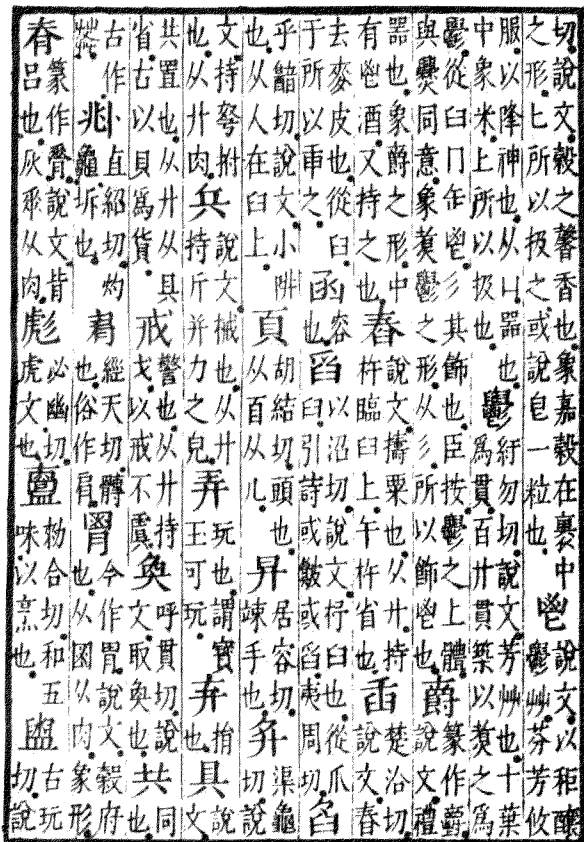 切說文穀之馨香也象嘉穀在裹中之形匕所以扱之或說皀一粒也鬯說文以秬釀鬱艸芬芳攸
服以降神也从凵器也中象米匕所以扱也鬱紆勿切說文芳艸也十葉為貫百廾貫築以煑之為
鬱從臼冂缶鬯彡其飾也臣按鬱之上體與爨同意象煑鬱之形从彡所以飾鬯也爵篆作說文禮
器也象爵之形中有鬯酒又持之也舂說文擣粟也从廾持杵臨臼上午杵省也臿楚洽切說文舂
去麥皮也從臼干所以臿之函容也舀以沼切說文抒臼也從爪臼引詩或皷或舀夷周切臽
乎韽切說文小阱也从人在臼上頁胡結切頭也从百从儿舁居容切竦手也渠龜切說
文持弩拊也从廾肉兵說文械也从廾持斤并力之皃弄玩也謂寳玉可玩弃捐也具說文
共置也从廾从具省古以貝爲貨戒警也从廾持戈以戒不虞奐呼貫切說文取奐也共同也
古作兆直紹切灼龜坼也肩經天切髆也俗作肩胃今作胃說文穀府也从囷从肉象形
脊篆作膂說文背呂也从肉彪必幽切虎文也切和五味以烹也盥古玩切說